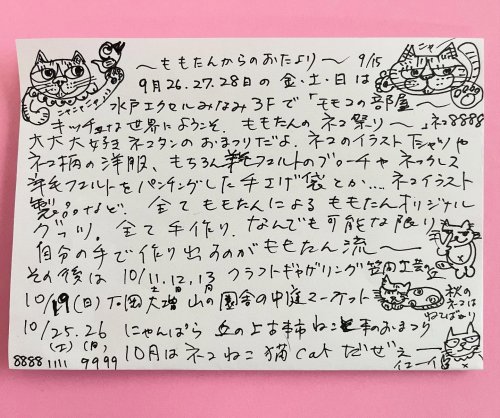 ～ももたんからのおたより～ 9/15
ニャ
ニャンニャンニャン
9月26.27.28日の金・土・日は
水戸エクセルみなみ3Fで「モモコの部屋～
キッチュな世界にようこそ。ももたんのネコ祭り～」ネコ8888
大大大好きネコタンのおまつりだよ。ネコのイラストTシャツや
ネコ柄の洋服、もちろん羊毛フェルトのブローチやネックレス
羊毛フェルトをパンチングした手上げ袋とか....ネコイラスト
製品など。全てももたんによるももたんオリジナル
グッヅ。全て手作り。なんでも可能な限り
自分の手で作り出るのがももたん流～
その後は10/11.12.13クラフトギャザリング笠間工芸
土日月
10/19(日)石岡大増山の園舎の中庭マーケット
秋の
ネコは
ねてばかり
10/25.26 にゃんぱら 丘の上古本市ねこ本のおまつり
(土)(日)
8888 1111 9999 10月はネコねこ猫catだぜぇ
イエーイ